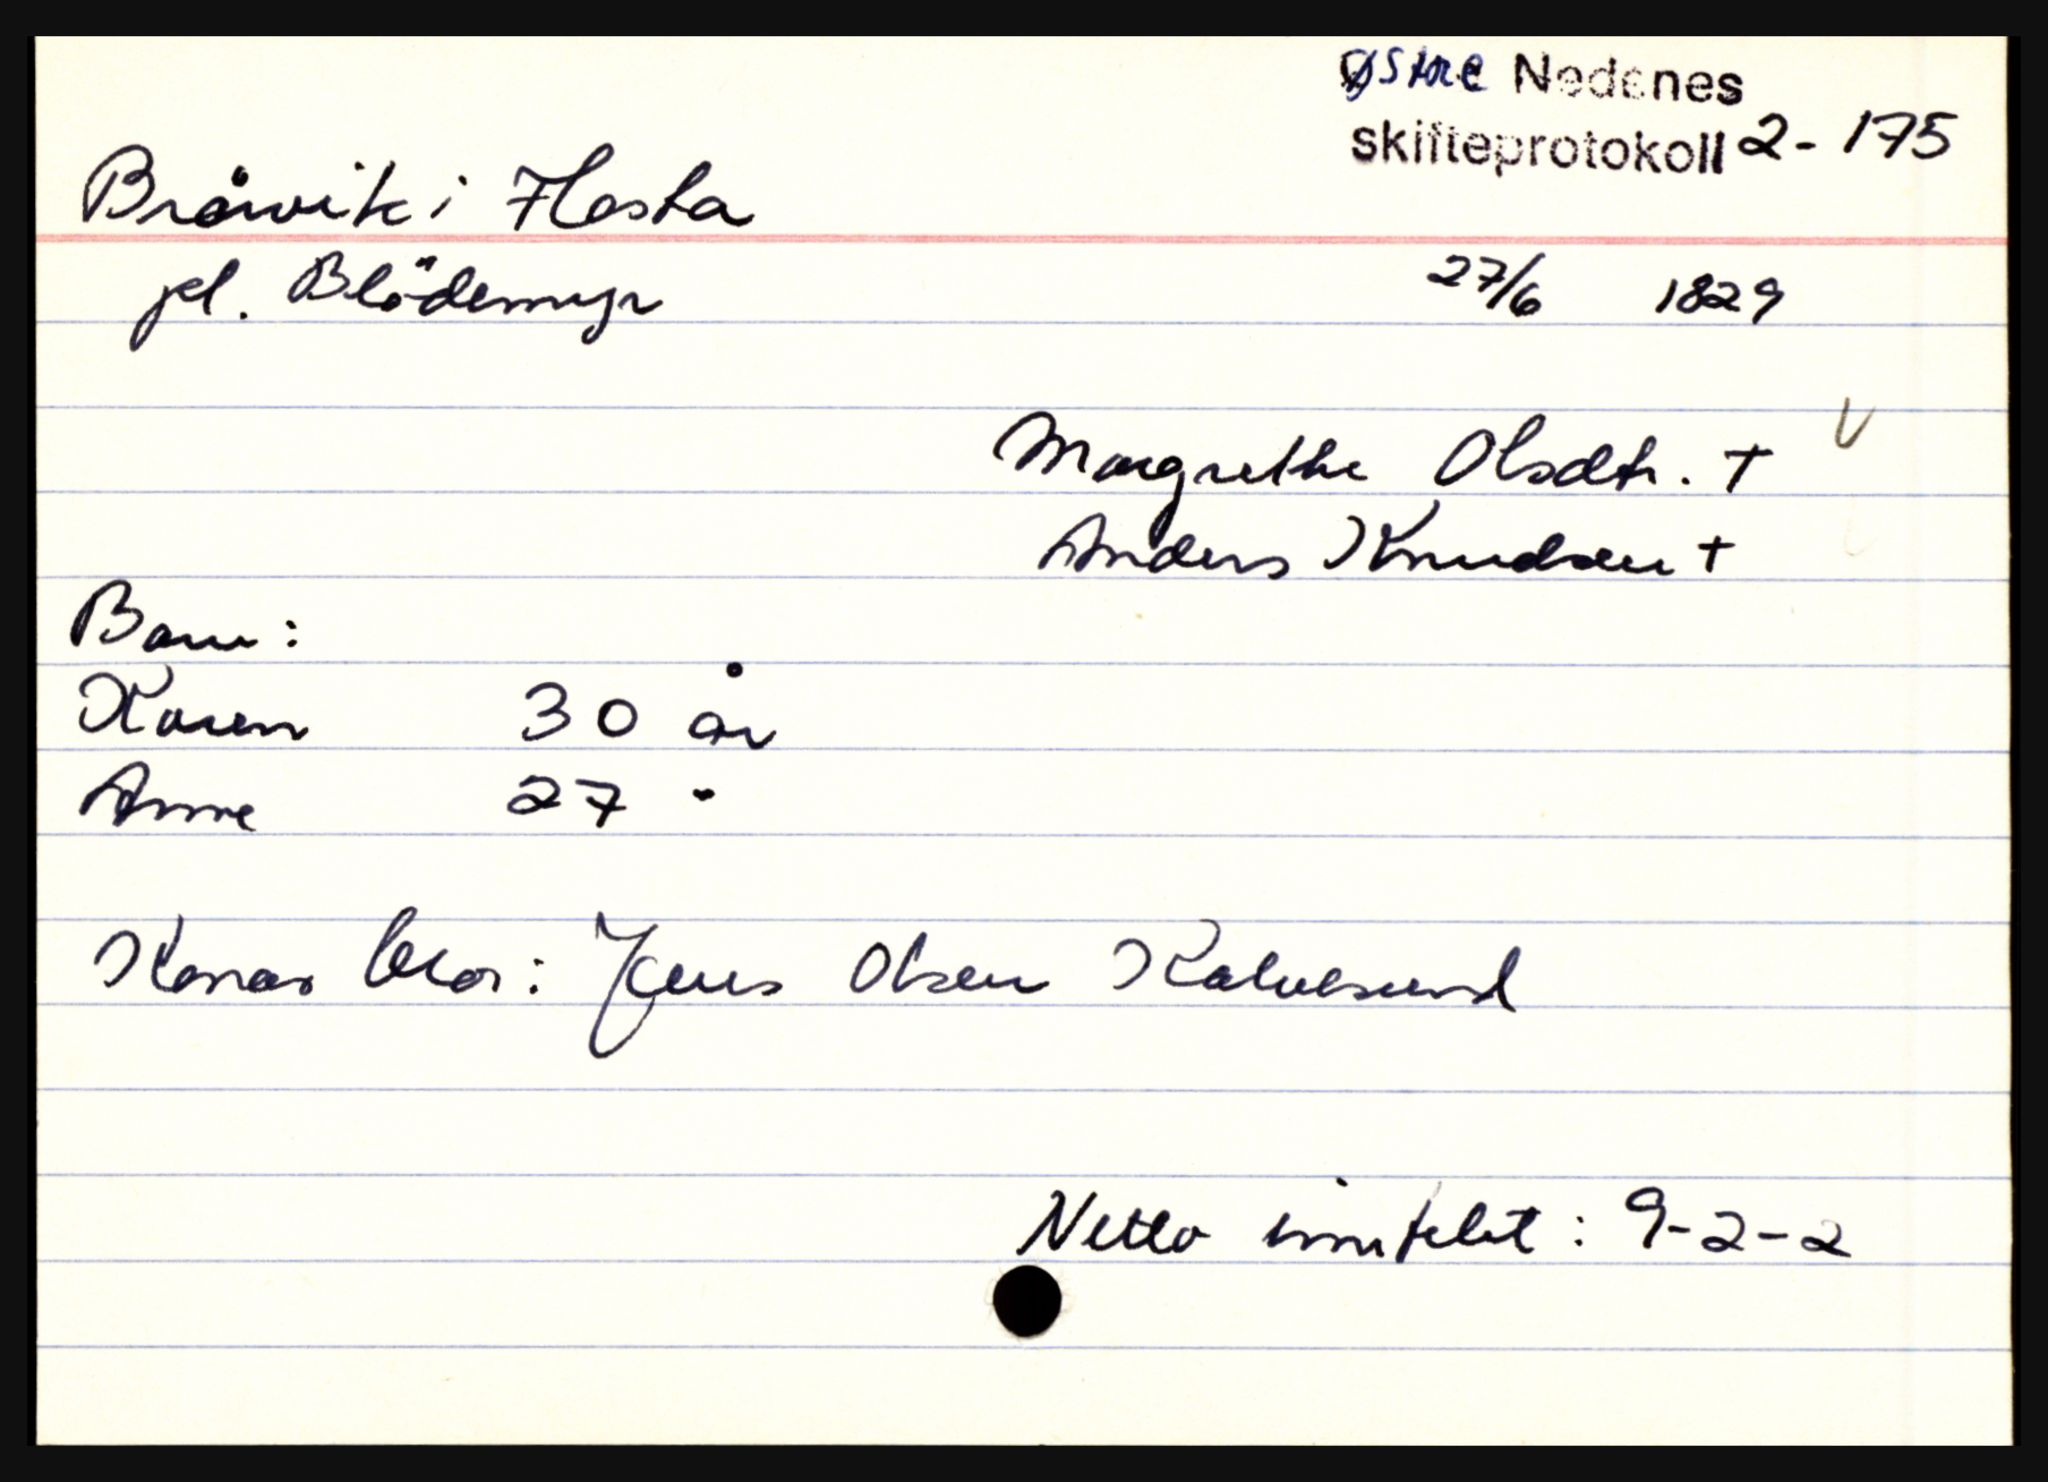 Østre Nedenes
skifteprotokoll 2-175
Bråvik i Flosta
pl. Blödemyr 27/6 1829
Margrethe Olsdtr. +
Anders Knudsen +
Barn:
Karen 30 år
Anne 27 "
Konas bror: Jens Olsen Kalvesund
Netto innfelet: 9-2-2